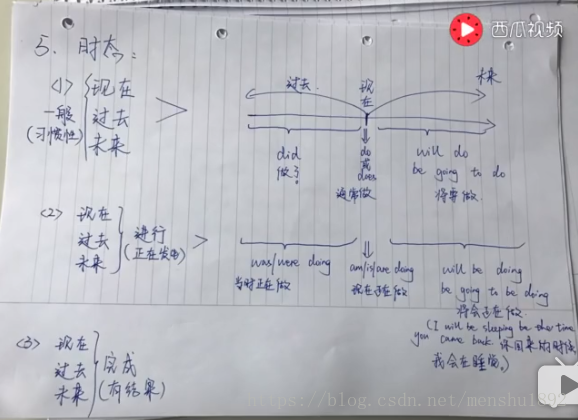 5、时态:
西瓜视频
<1> 一般 (习惯性) { 现在
过去
未来
过去 现在 未来
did
做了
do
或
does
通常做
will do
be going to do
将要做
<2> 现在
过去
未来
} 进行
(正在发生)
was/were doing
当时正在做
am/is/are doing
现在正在做
will be doing
be going to be doing
将会正在做
(I will be sleeping be the time
you came back 你回来的时候
我会在睡觉。)
<3> 现在
过去
未来
} 完成
(有结果)
https://blog.csdn.net/menshu1892